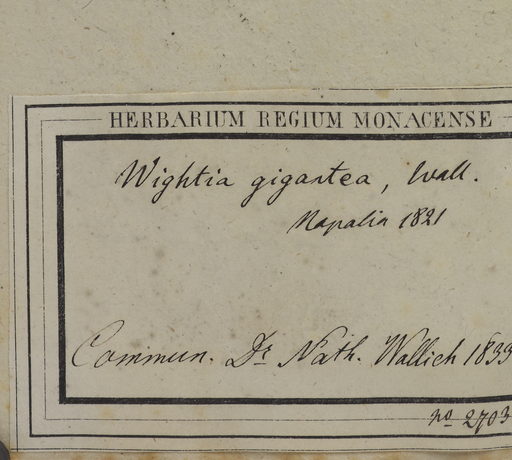 HERBARIUM REGIUM MONACENSE
Wightia gigantea, Wall.
Napalia 1821
Commun. Dr Nath. Wallich 1833
no 2703